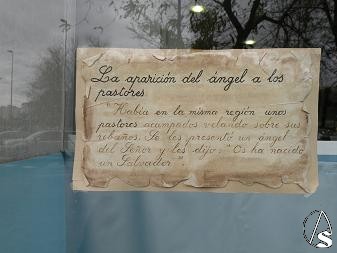 La aparición del ángel a los
pastores
"Había en la misma región unos
pastores acampados velando sobre sus
rebaños. Se les presentó un ángel
del Señor y les dijo: "Os ha nacido
un Salvador".